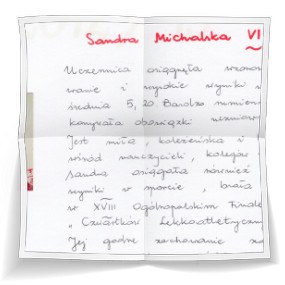 Sandra Michalska VI
Uczennica osiągnęła wzorowe
wanie i wysokie wyniki w
średnia 5,20. Bardzo sumienn
obowiązki uczniow
Jest miła, koleżeńska i
wśród nauczycieli, kolegów
Sandra osiągała również
wyniki w sporcie, brała
w XVIII Ogólnopolskim Finale
"Czwartków Lekkoatletyczn
Jej godne zachowanie